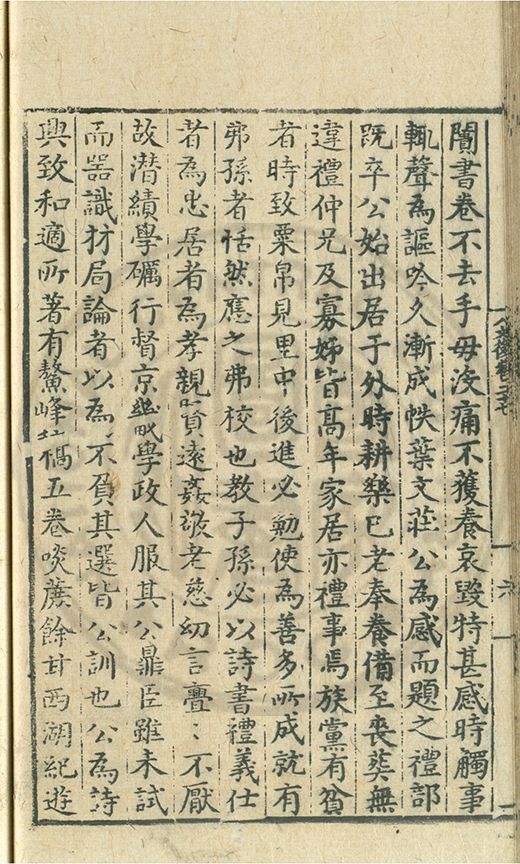 闇書卷不去手毋沒痛不獲養哀毀特甚感時觸事
輒聲為謳吟久漸成帙葉文莊公為感而題之禮部
既卒公始出居于外時耕樂已老奉養備至喪葬無
違禮仲兄及寡姊皆高年家居亦禮事焉族黨有貧
者時致粟帛見里中後進必勉使為善多所成就有
弗孫者恬然應之弗校也教子孫必以詩書禮義仕
者為忠居者為孝親賢遠姦敬老慈幼言亹〻不厭
故潜績學礪行督京畿學政人服其公鼎臣雖未試
而器識材局論者以為不負其選皆公訓也公為詩
興致和適所著有鰲峰類稿五卷啖蔗餘甘西湖紀遊
六